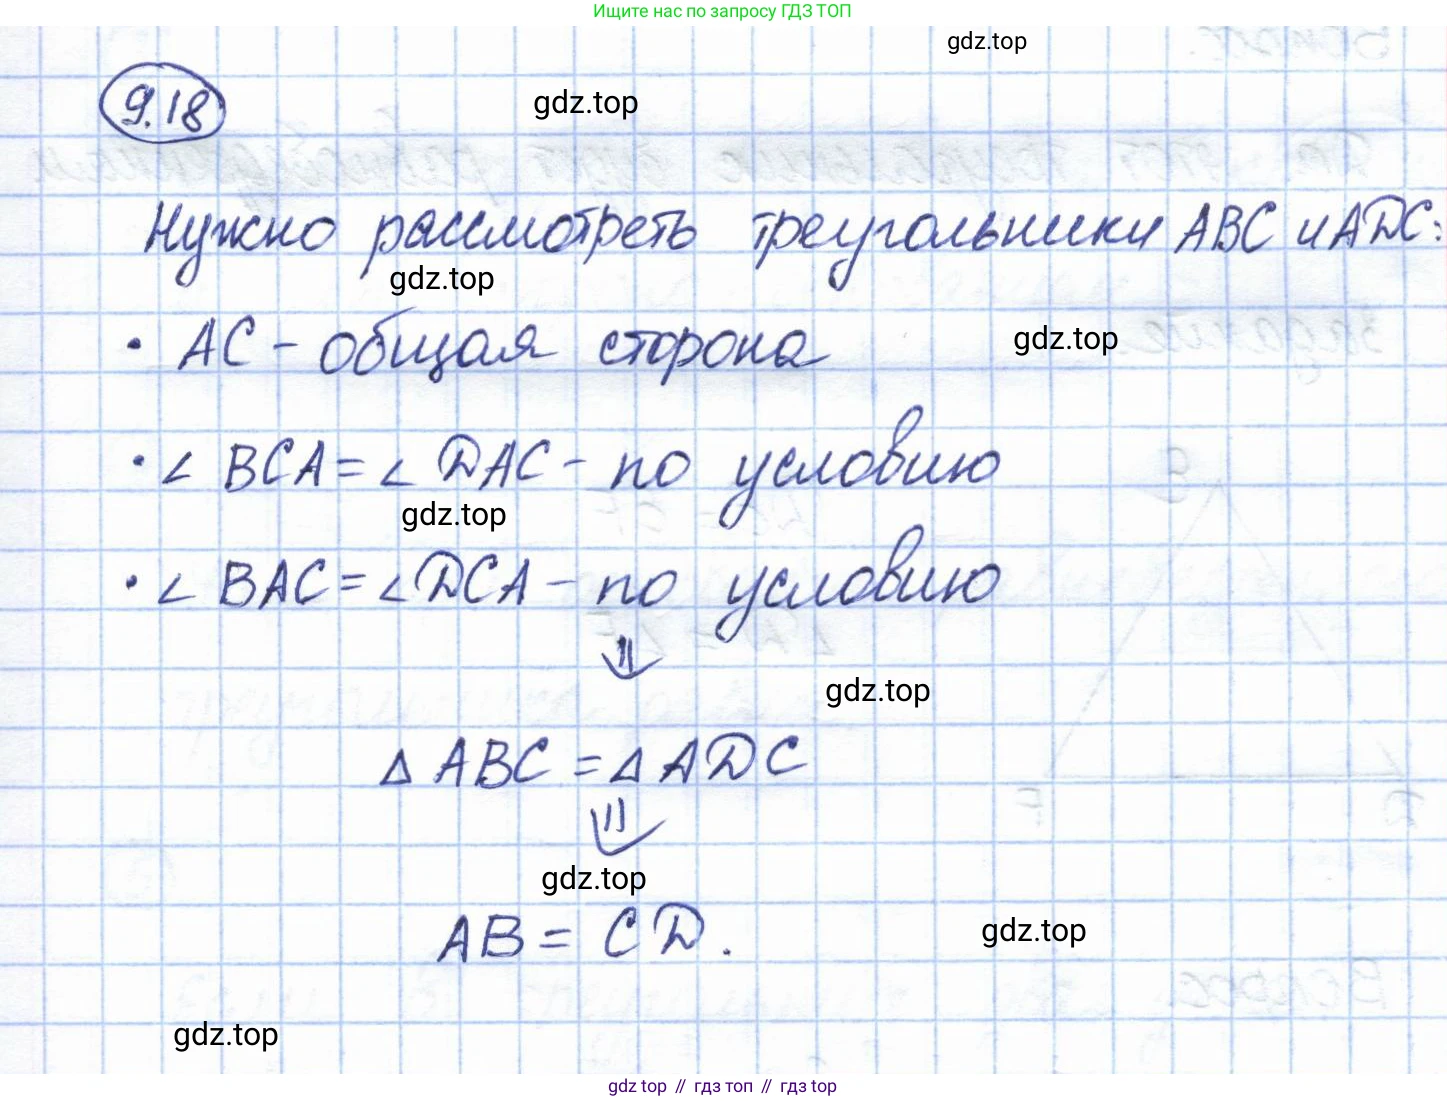 Ищите нас по запросу ГДЗ ТОП
gdz.top
9.18
gdz.top
Нужно рассмотреть треугольники ABC и ADC:
gdz.top
• AC - общая сторона
gdz.top
• ∠ BCA = ∠ DAC - по условию
gdz.top
• ∠ BAC = ∠ DCA - по условию
⇓
gdz.top
Δ ABC = Δ ADC
⇓
gdz.top
AB = CD.
gdz.top
gdz.top
gdz top // гдз топ // гдз top